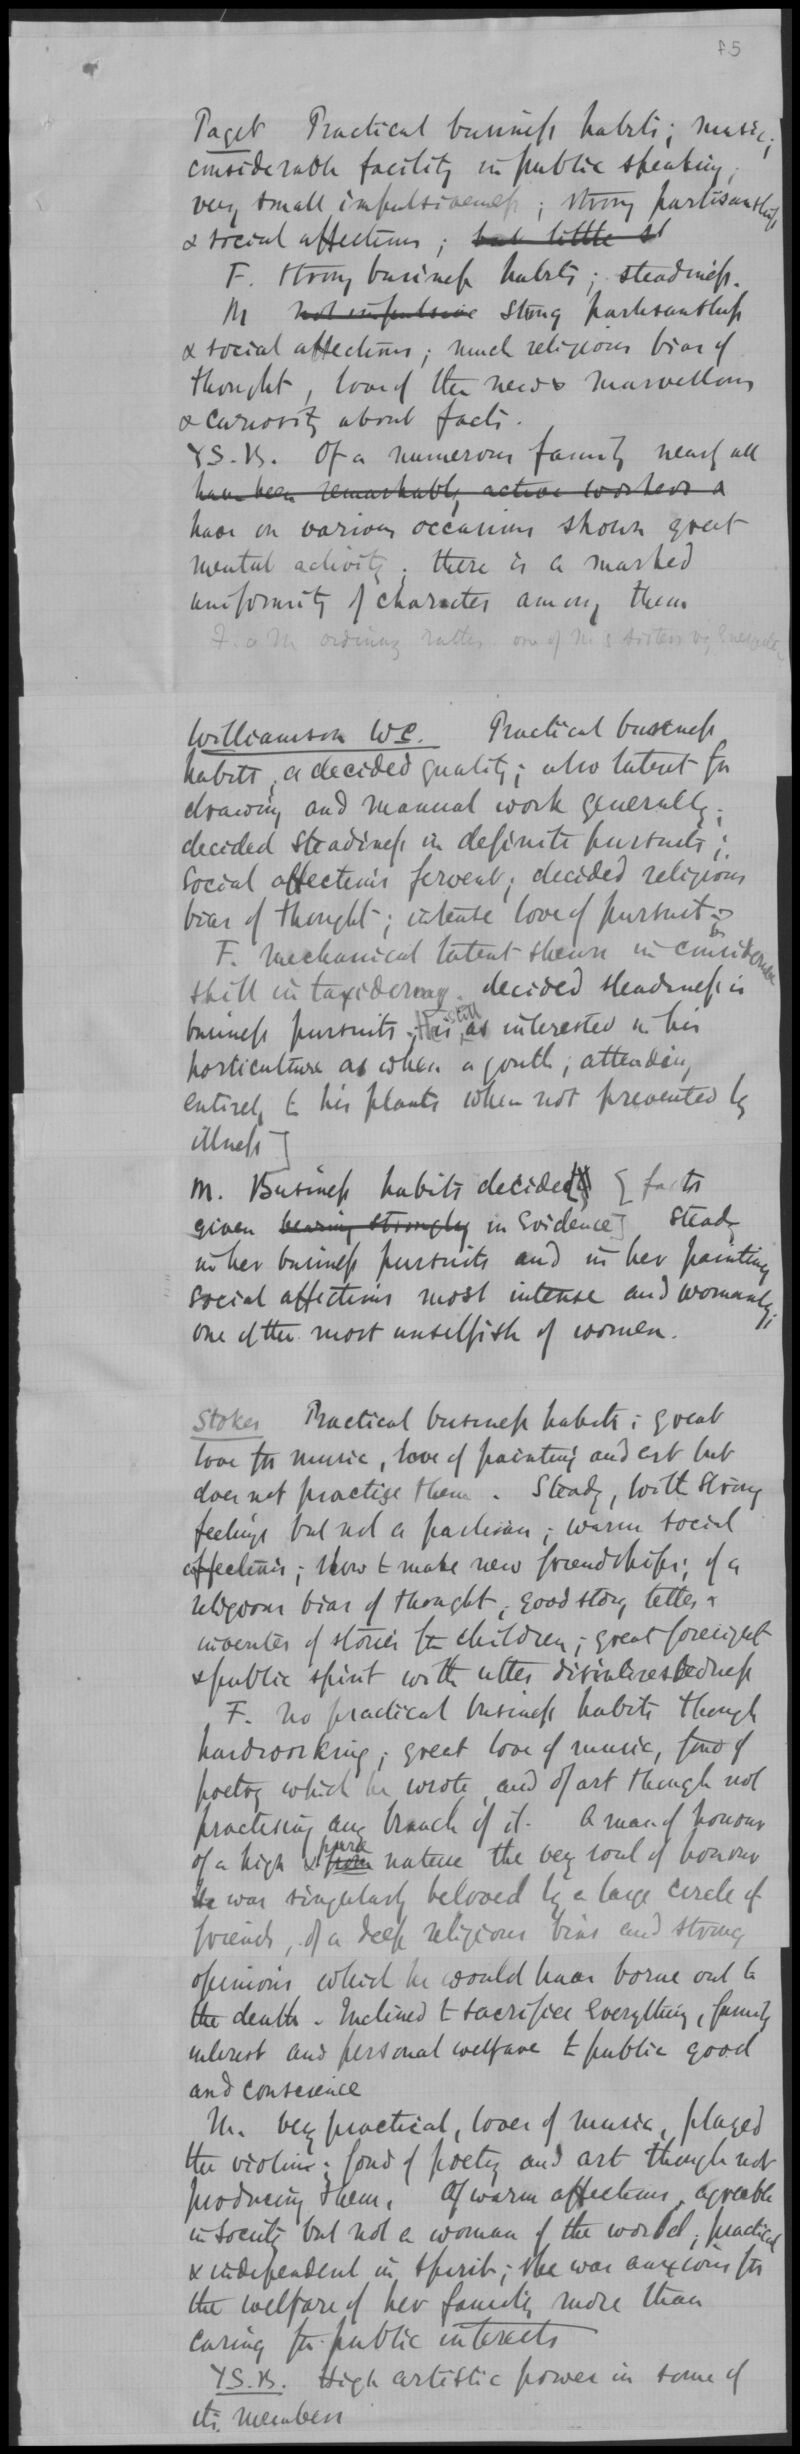 F5
Paget Practical business habits; music;
considerable facility in public speaking;
very small impulsiveness; strong partisanship
& social affections; but little st
F. strong business habits; steadiness.
M not impulsive strong partisanship
& social affections; much religious bias of
thought, love of the new & marvellous
& curiosity about facts.
YS.B. Of a numerous family nearly all
have been remarkably active workers &
have on various occasions shown great
mental activity; there is a marked
uniformity of character among them
F. & M ordinary rather one of M's sisters
Williamson WC. Practical business
habits, a decided quality; also talent for
drawing and manual work generally;
decided steadiness in definite pursuits;
social affections fervent; decided religious
bias of thought; intense love of pursuit
F. mechanical talent shewn in considerable
skill in taxidermy. decided steadiness in
business pursuits; [He is still as interested in his
horticulture as when a youth; attending
entirely to his plants when not prevented by
illness]
M. Business habits decided [facts
given bearing strongly in Evidence] Steady
in her business pursuits and in her painting
social affections most intense and womanly;
one of the most unselfish of women.
Stokes Practical business habits; great
love for music, love of painting and art but
does not practise them. Steady, with strong
feelings but not a partisan; warm social
affections; slow to make new friendships; of a
religious bias of thought; good story teller &
inventer of stories for children; great foresight
& public spirit with utter disinterestedness
F. No practical business habits though
hardworking; great love of music, fond of
poetry which he wrote, and of art though not
practising any branch of it. A man of honour
of a high & from pure nature the very soul of honour
He was singularly beloved by a large circle of
friends, of a deep religious bias and strong
opinions which he would have borne out to
the death. Inclined to sacrifice everything, family
interest and personal welfare to public good
and conscience
M. very practical, lover of music, played
the violin; fond of poetry and art though not
producing them. Of warm affections, agreeable
in society but not a woman of the world; practical
& independent in spirit; she was anxious for
the welfare of her family more than
caring for public interests
YS.B. High artistic power in some of
its members